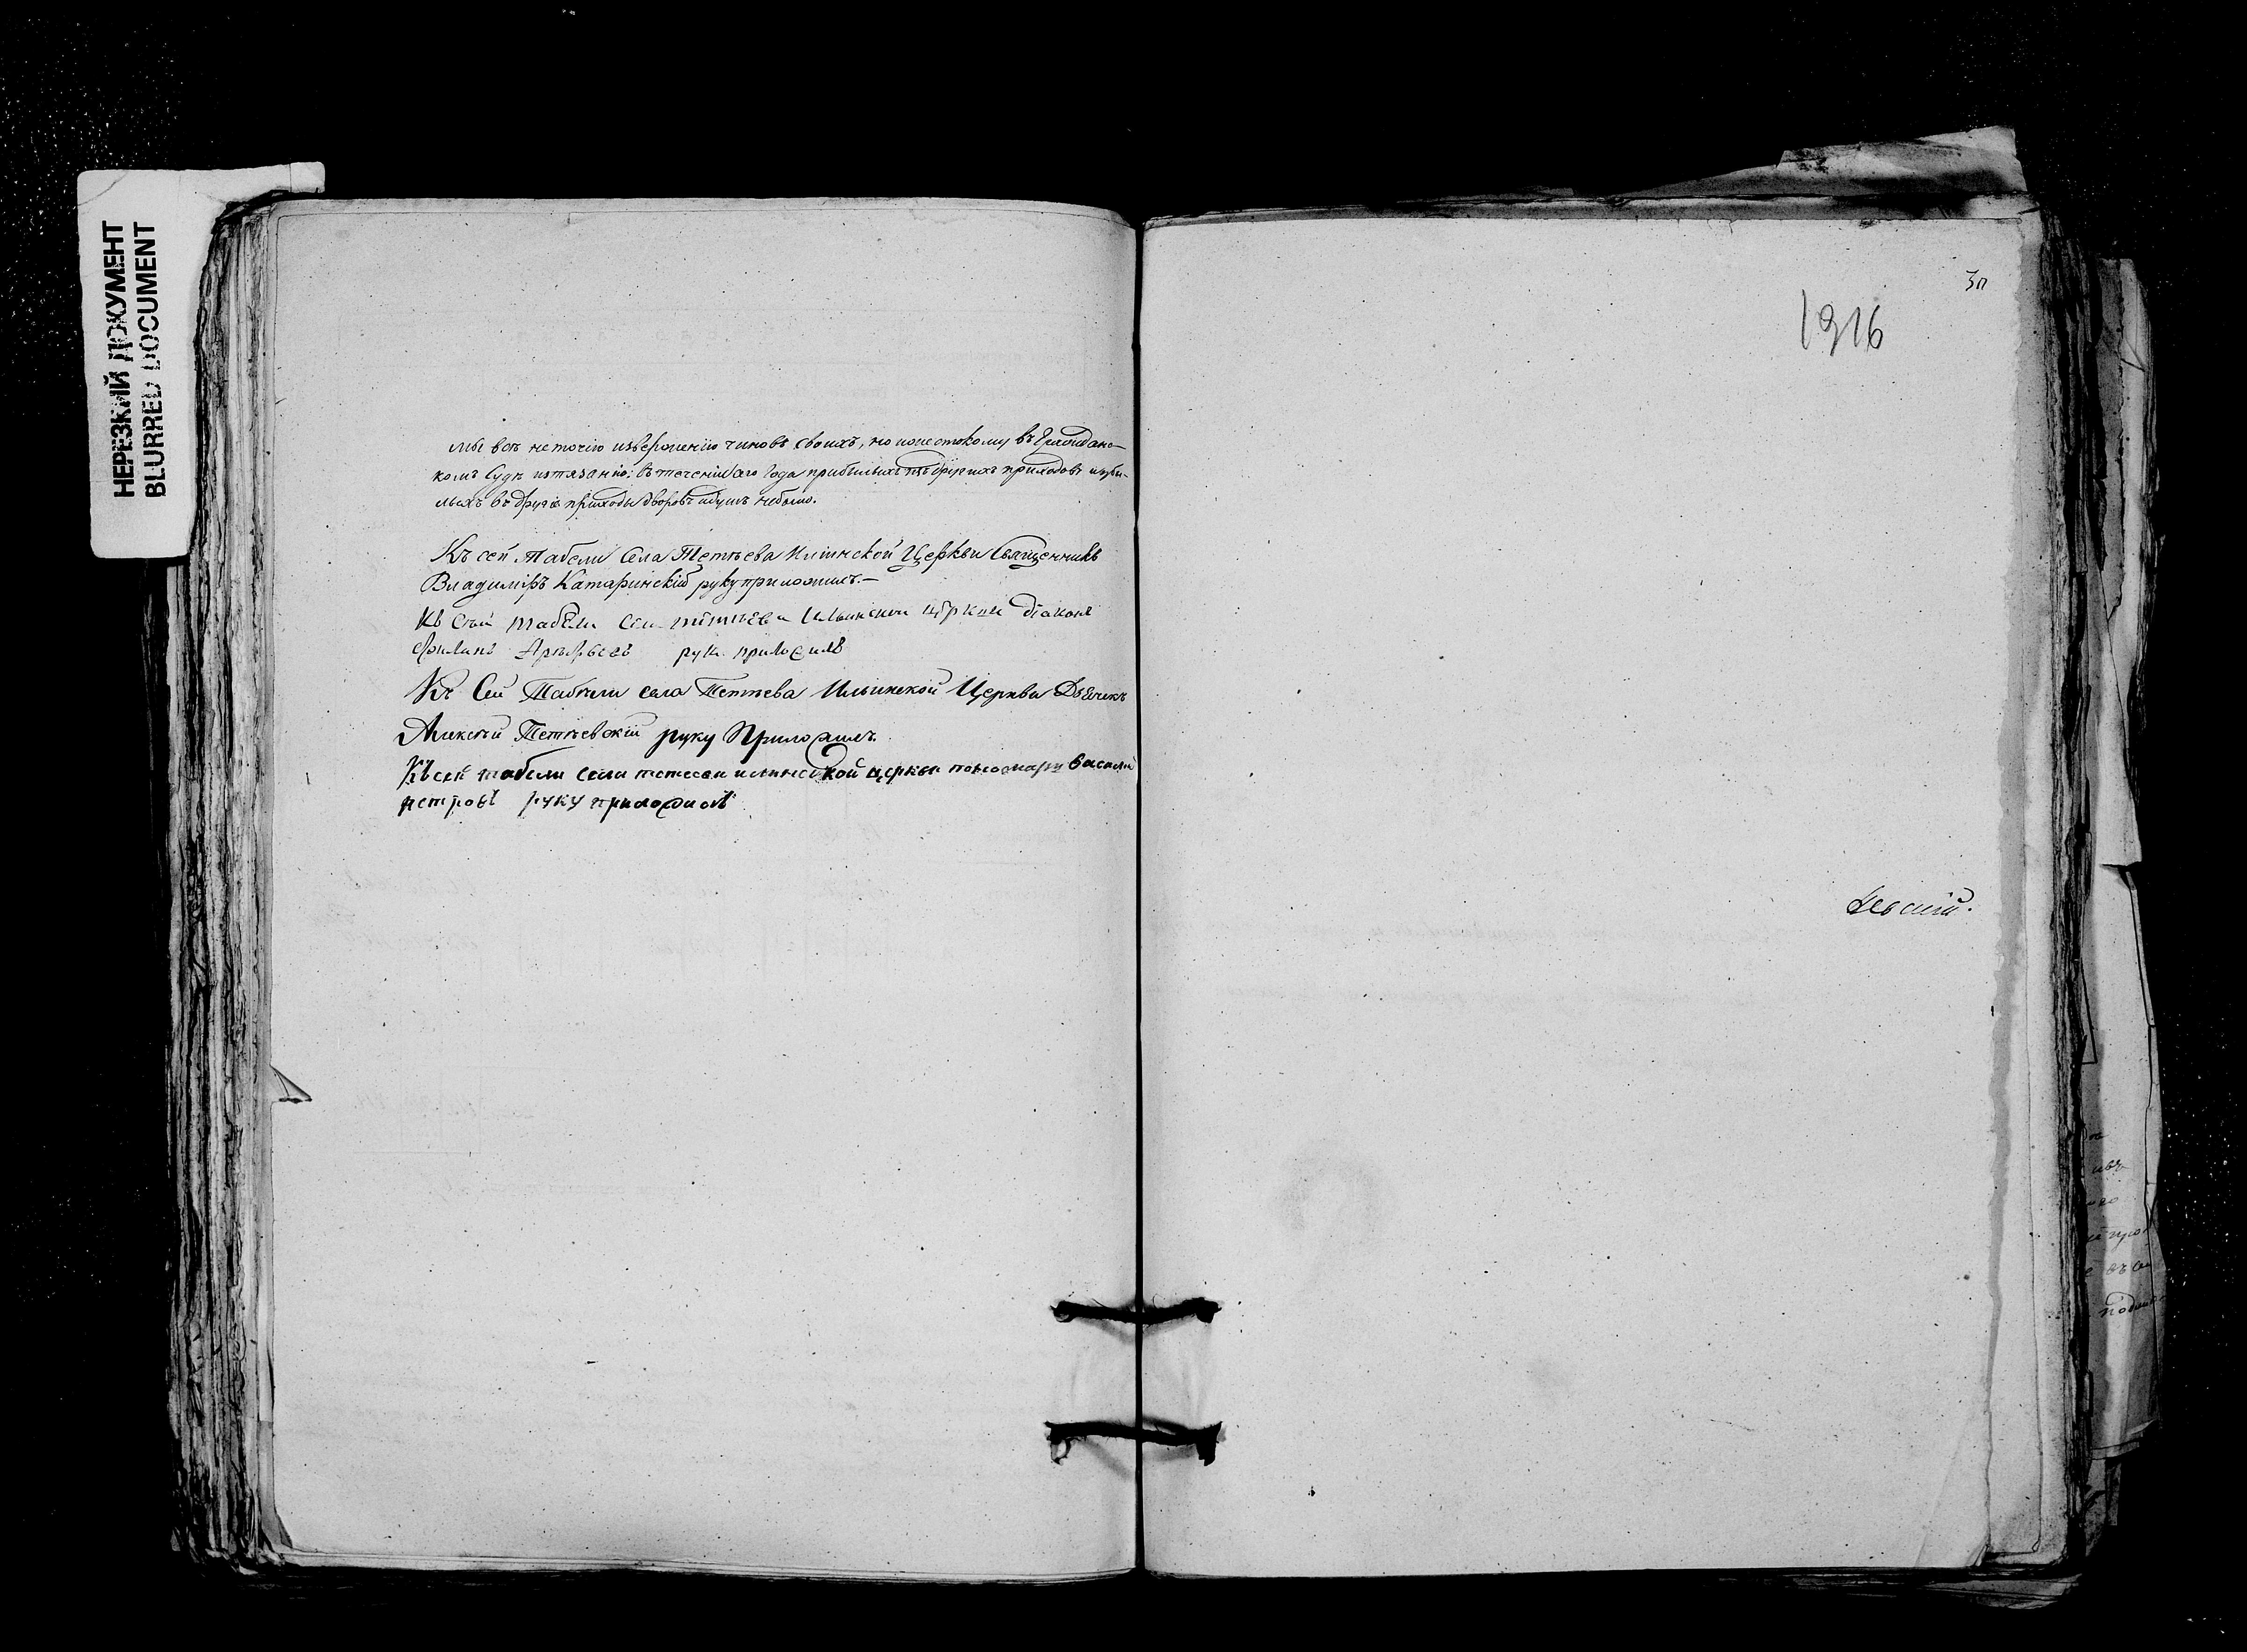 НЕРЕЗКИЙ ДОКУМЕНТ
BLURRED DOCUMENT
мы всѣ не точію изверженію чиновъ своихъ, но и жестокому въ Гражданс-
комъ Судѣ истязанію; въ теченіи сего Года прибылыхъ изъ другихъ приходовъ и убы-
лыхъ въ другіе приходы дворовъ и душъ небыло.
Къ сей Табели Села Тетѣева Илiинской Церкви Священникъ
Владимiръ Катаринскiй руку приложилъ.—
Къ сей табели Ильинской церкви дiаконъ
Филипъ приложилъ
Къ Сей Табели села Тетѣева Ильинской Церкви Дьячекъ
Алексѣй Тетѣевскiй руку Приложилъ.
Къ сей табели села тетеева илинской церкви пономарь василей
петровъ руку приложилъ
1916